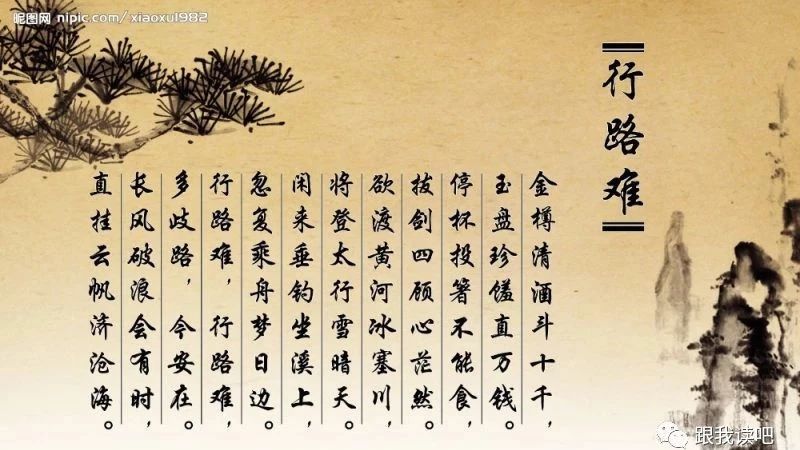 昵图网 nipic.com/xiaoxu1982
行路难
金樽清酒斗十千，
玉盘珍馐直万钱。
停杯投箸不能食，
拔剑四顾心茫然。
欲渡黄河冰塞川，
将登太行雪暗天。
闲来垂钓坐溪上，
忽复乘舟梦日边。
行路难，行路难，
多歧路，今安在。
长风破浪会有时，
直挂云帆济沧海。
跟我读吧